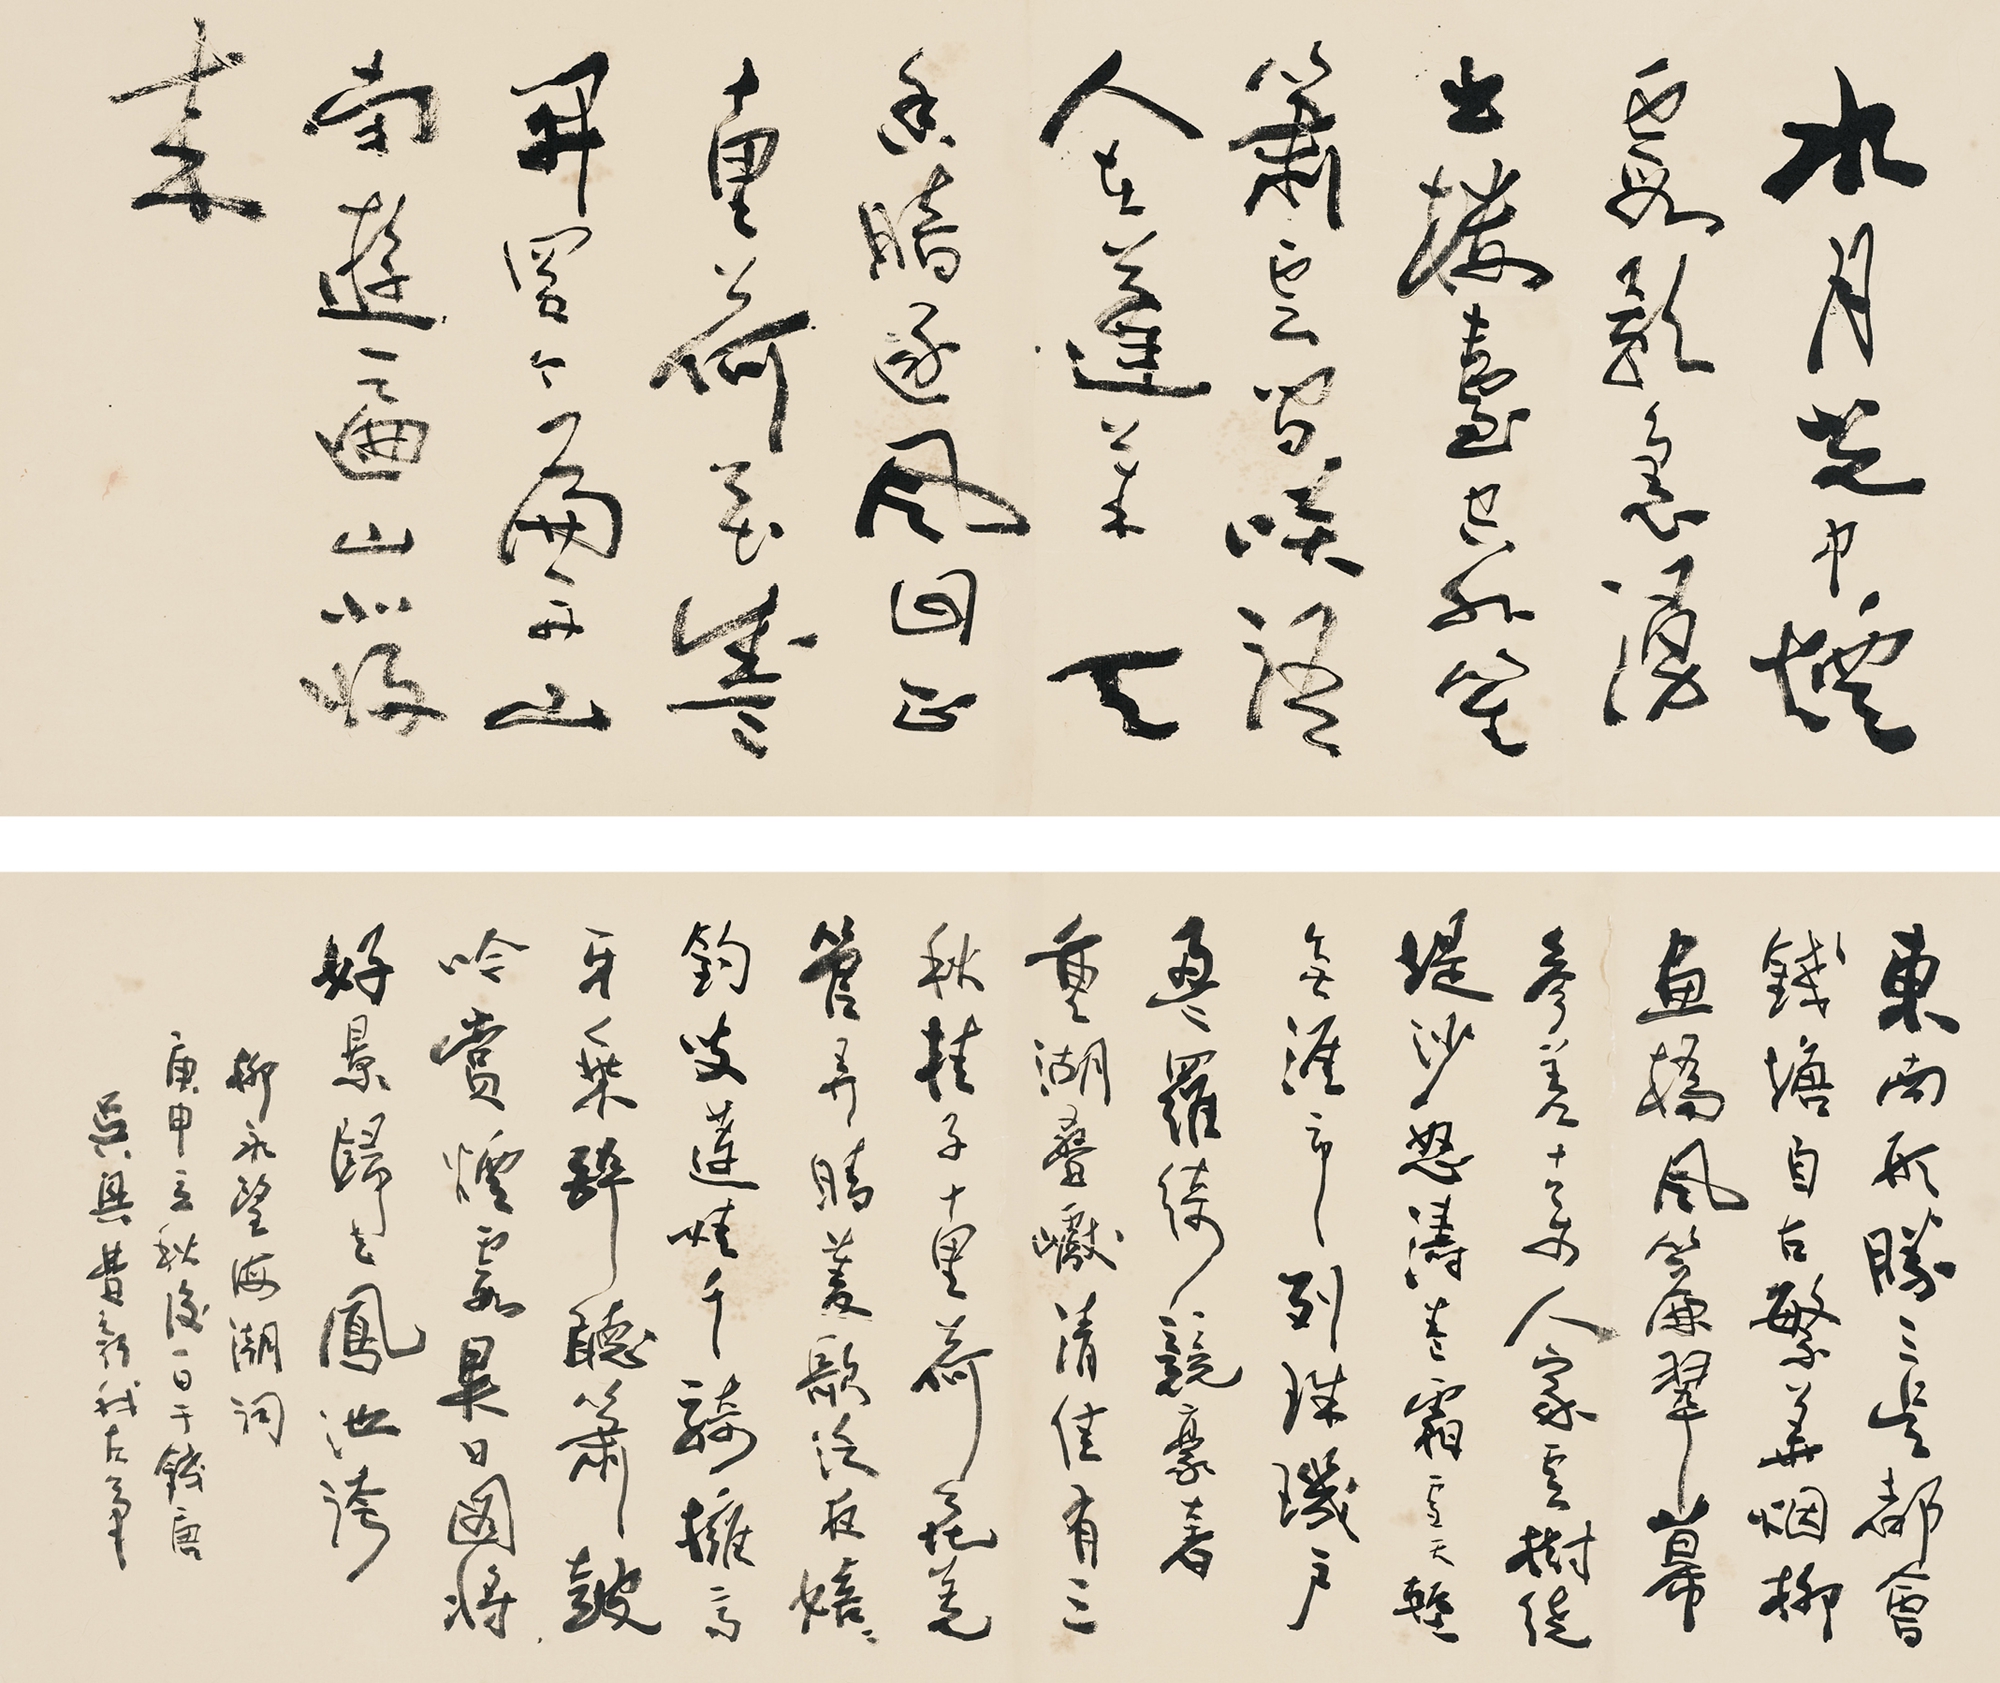 水月光中煙
霞影裏湧
出樓臺空外笙
簫雲間笑語
人在蓬萊 天
香暗逐風回正
十里荷花盛
開買个扁舟山
南遊遍山北歸
來
東南形勝三吳都會
錢塘自古繁華烟柳
畫橋風簾翠幕
參差十萬人家雲樹繞
堤沙怒濤卷霜雪天塹
無涯市列珠璣戶
盈羅綺競豪奢
重湖疊巘清佳有三
秋桂子十里荷花羌
管弄晴菱歌泛夜嬉〻
釣叟蓮娃千騎擁高
牙乘醉聽簫鼓
吟賞煙霞異日圖將
好景歸去鳳池誇
柳永望海潮詞
庚申立秋後一日于錢唐
吳興費新我左筆